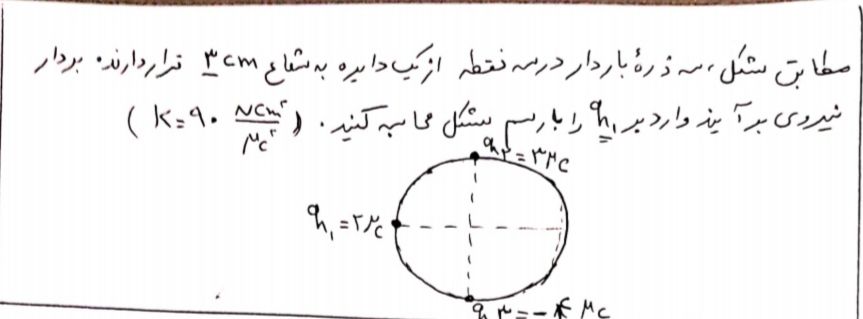 مطابق شکل، سه ذرهٔ باردار در سه نقطه از یک دایره به شعاع ۳ cm قرار دارند. بردار
نیروی برآیند وارد بر q₁ را با رسم شکل محاسبه کنید. (K=۹۰ NCm²/μc²)
q₂ = ۳μc
q₁ = ۲μc
q₃ = -۴ μc